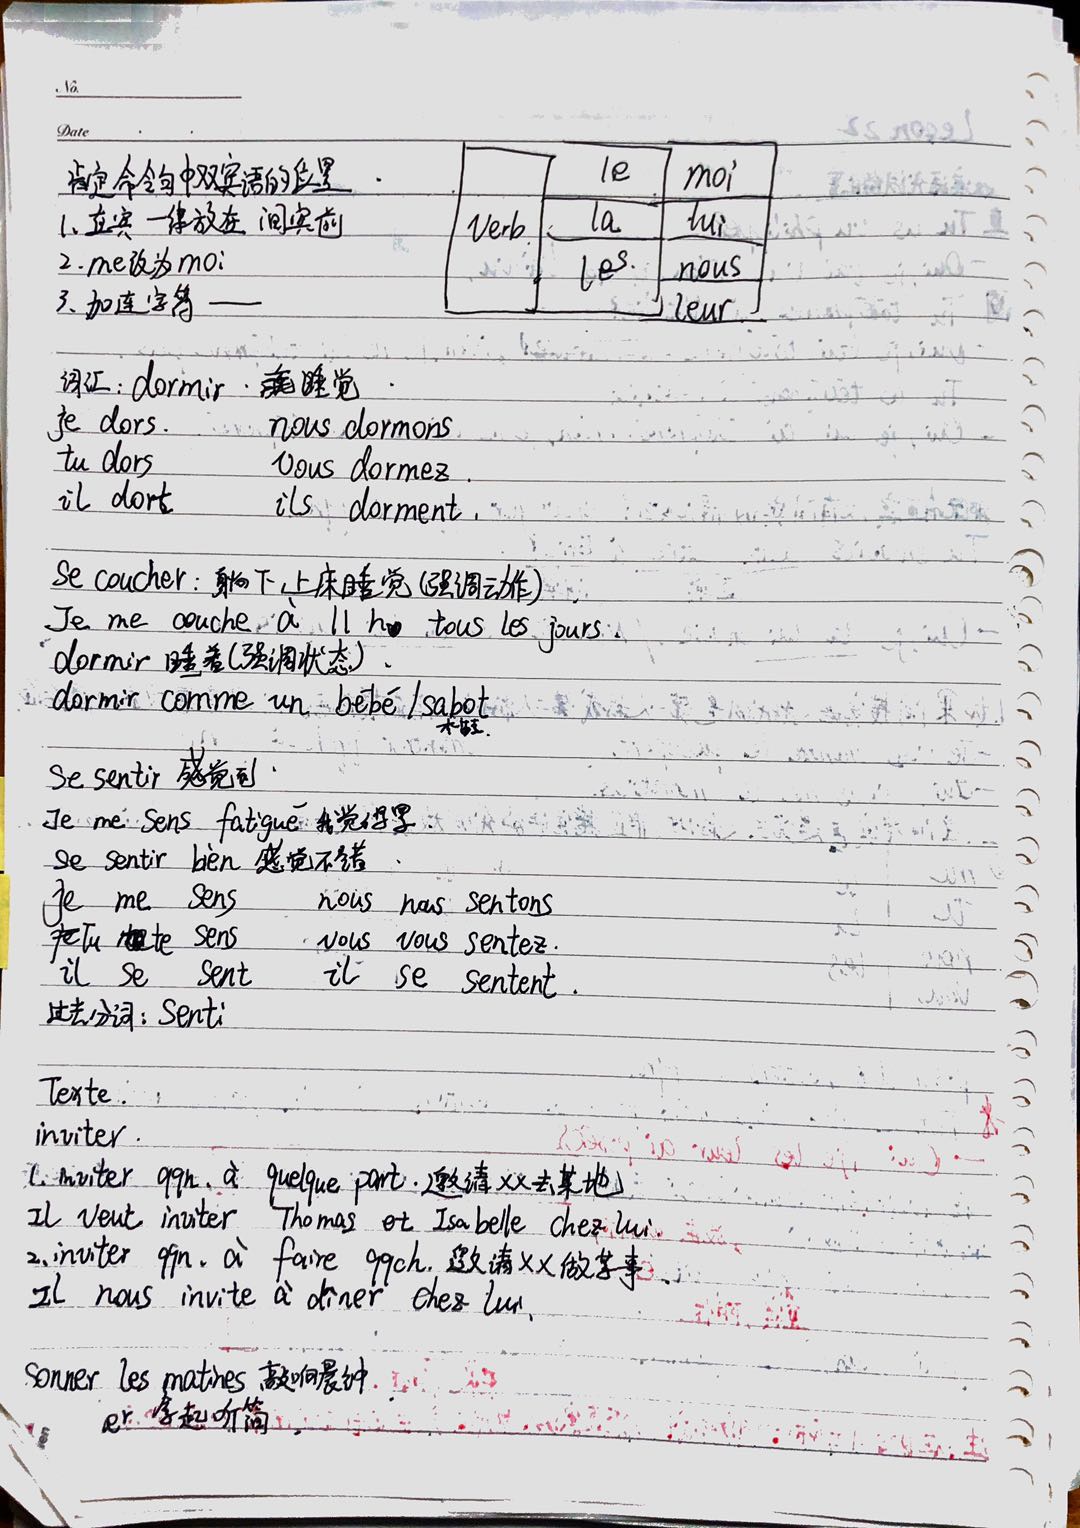 No.
Date
肯定命令句中双宾语的位置
1、直宾一律放在间宾前
2. me改为moi
3、加连字符 —
verb
le moi
la lui
les. nous
leur
词汇: dormir. 睡觉
je dors. nous dormons
tu dors vous dormez.
il dort ils dorment.
Se coucher: 躺下上床睡觉(强调动作)
Je me couche à 11 h tous les jours.
dormir 睡着(强调状态).
dormir comme un bébé/sabot
木鞋.
Se sentir 感觉到.
Je me sens fatigué 我觉得累.
se sentir bien 感觉不错.
je me sens nous nous sentons
Tu te sens vous vous sentez.
il se sent il se sentent.
过去分词: Senti
Texte.
inviter.
1. inviter qqn. à quelque part. 邀请××去某地
Il veut inviter Thomas et Isabelle chez lui
2. inviter qqn. à faire qqch. 邀请××做某事.
Il nous invite à dîner chez lui.
Sonner les matines 敲响晨钟.
er 拿起听筒.